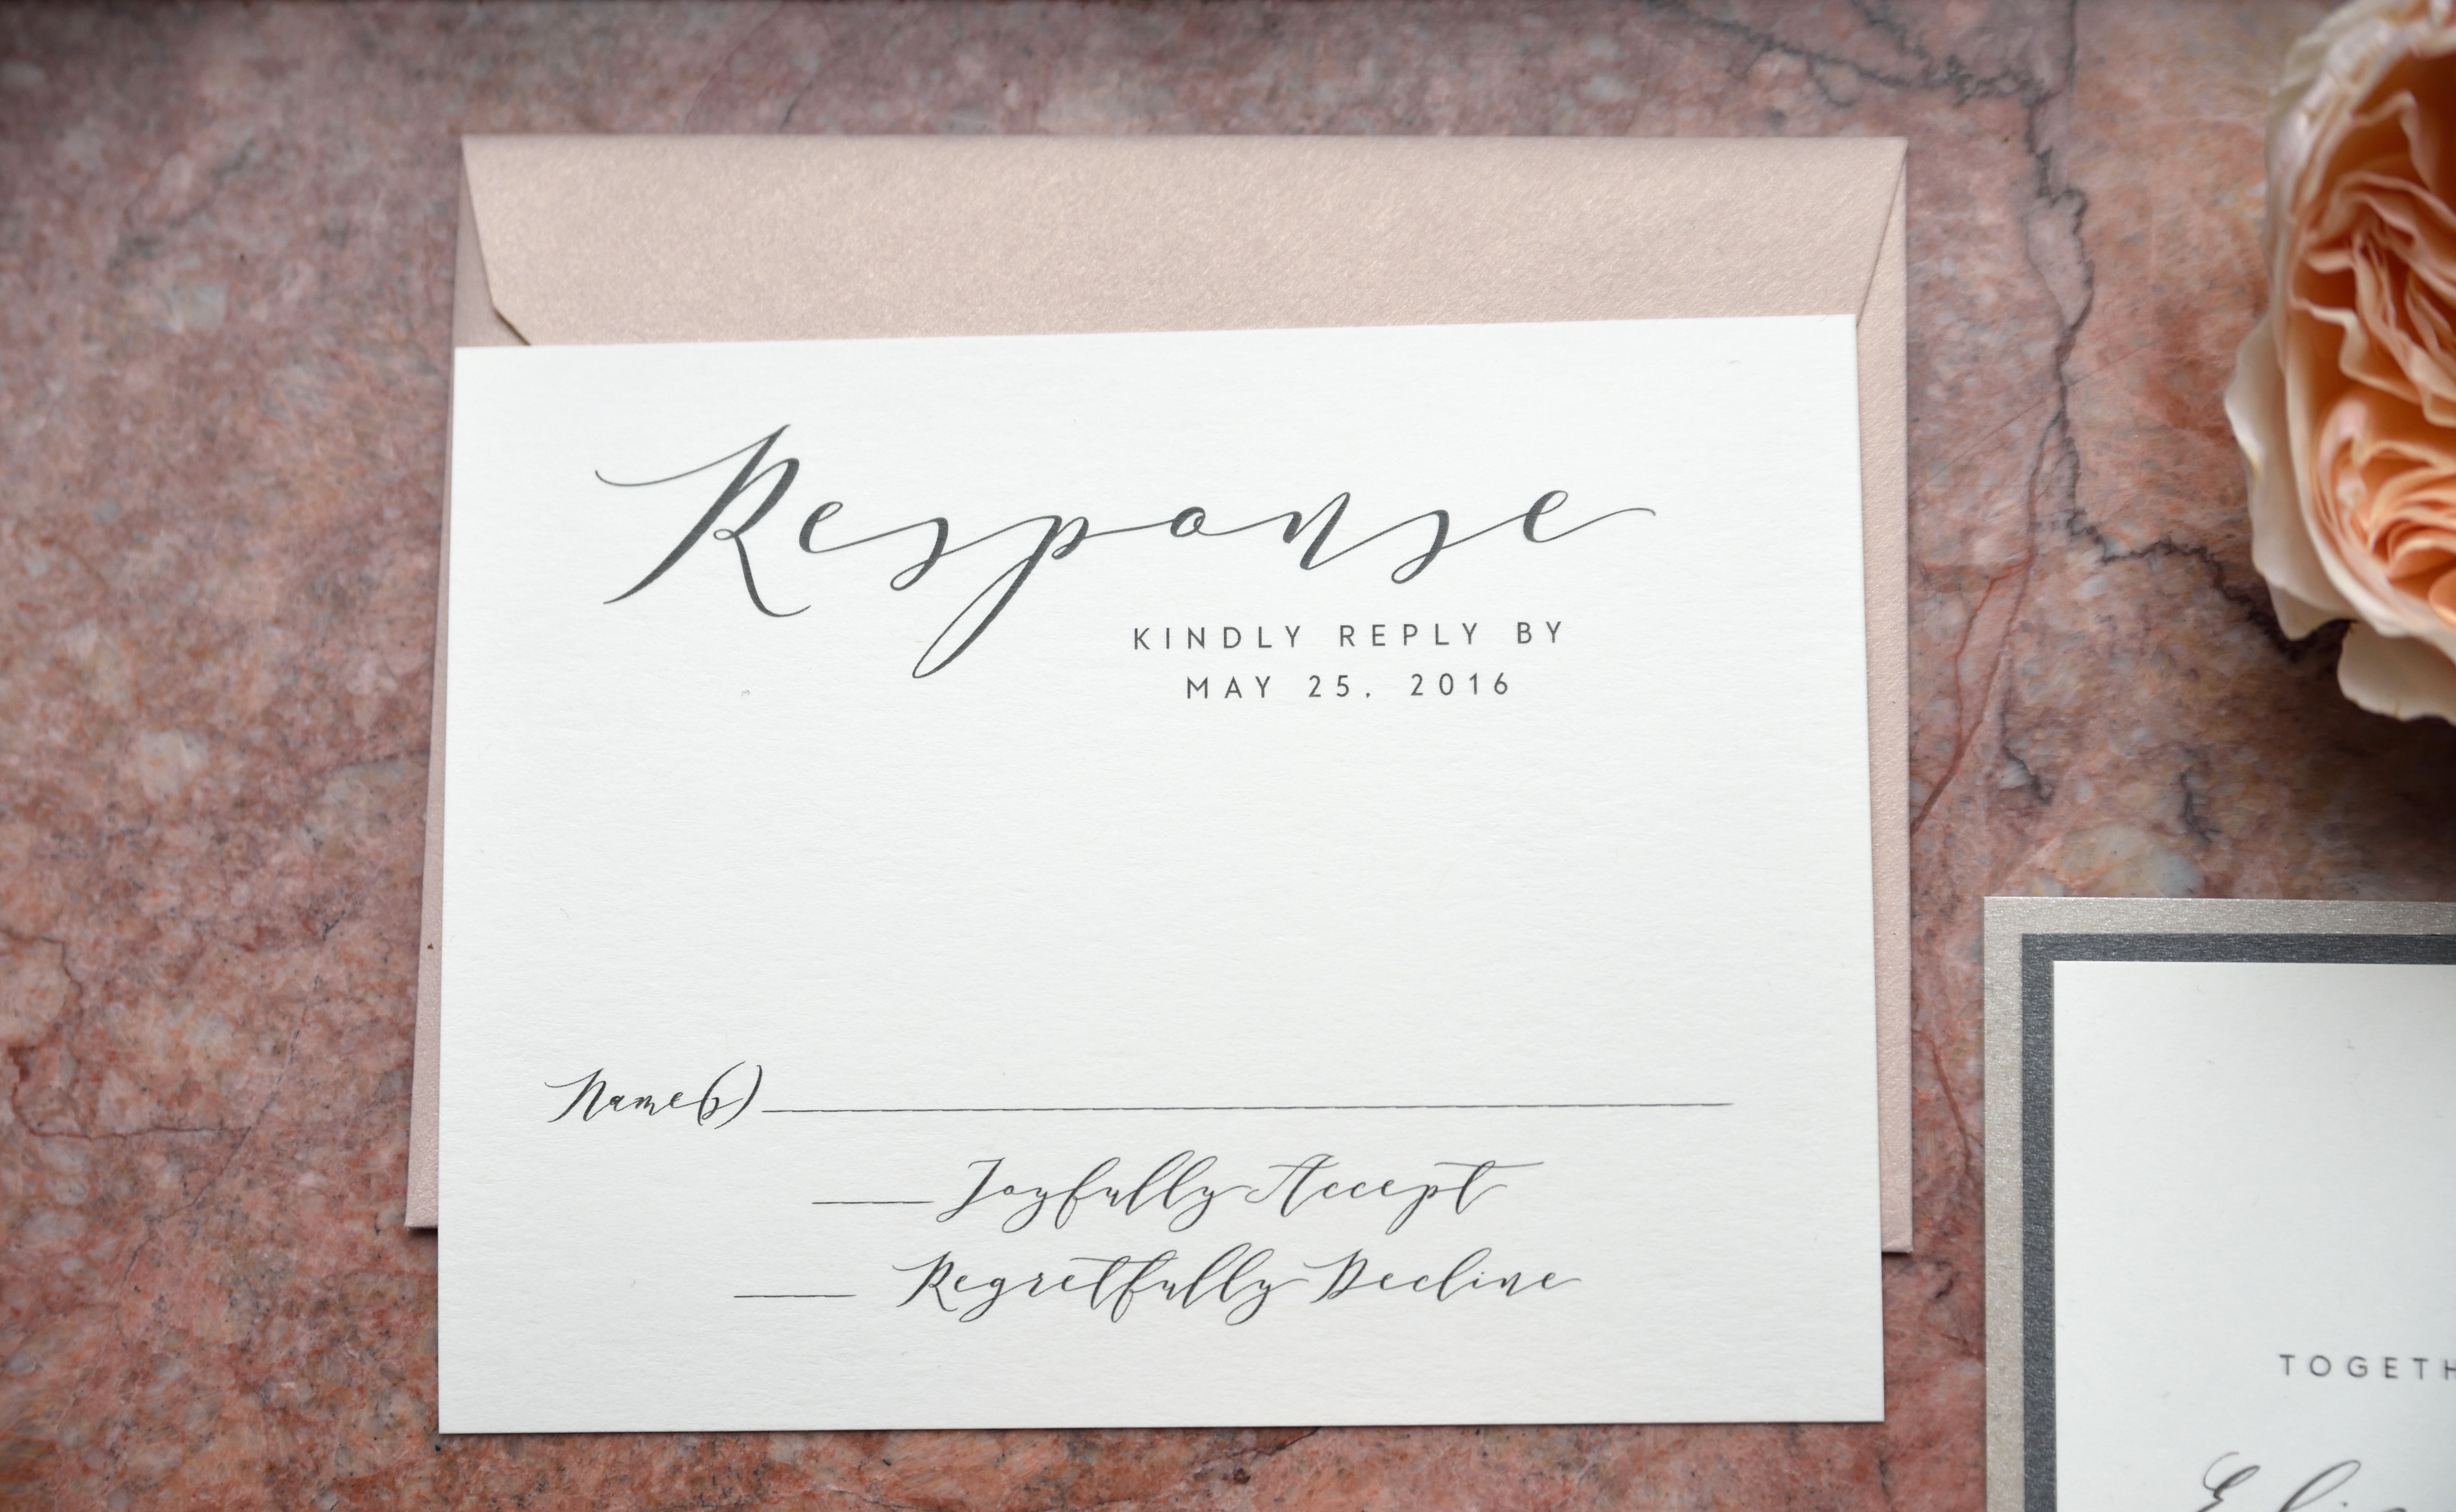 Response
KINDLY REPLY BY
MAY 25, 2016
Name(s)
Joyfully Accept
Regretfully Decline
TOGETH